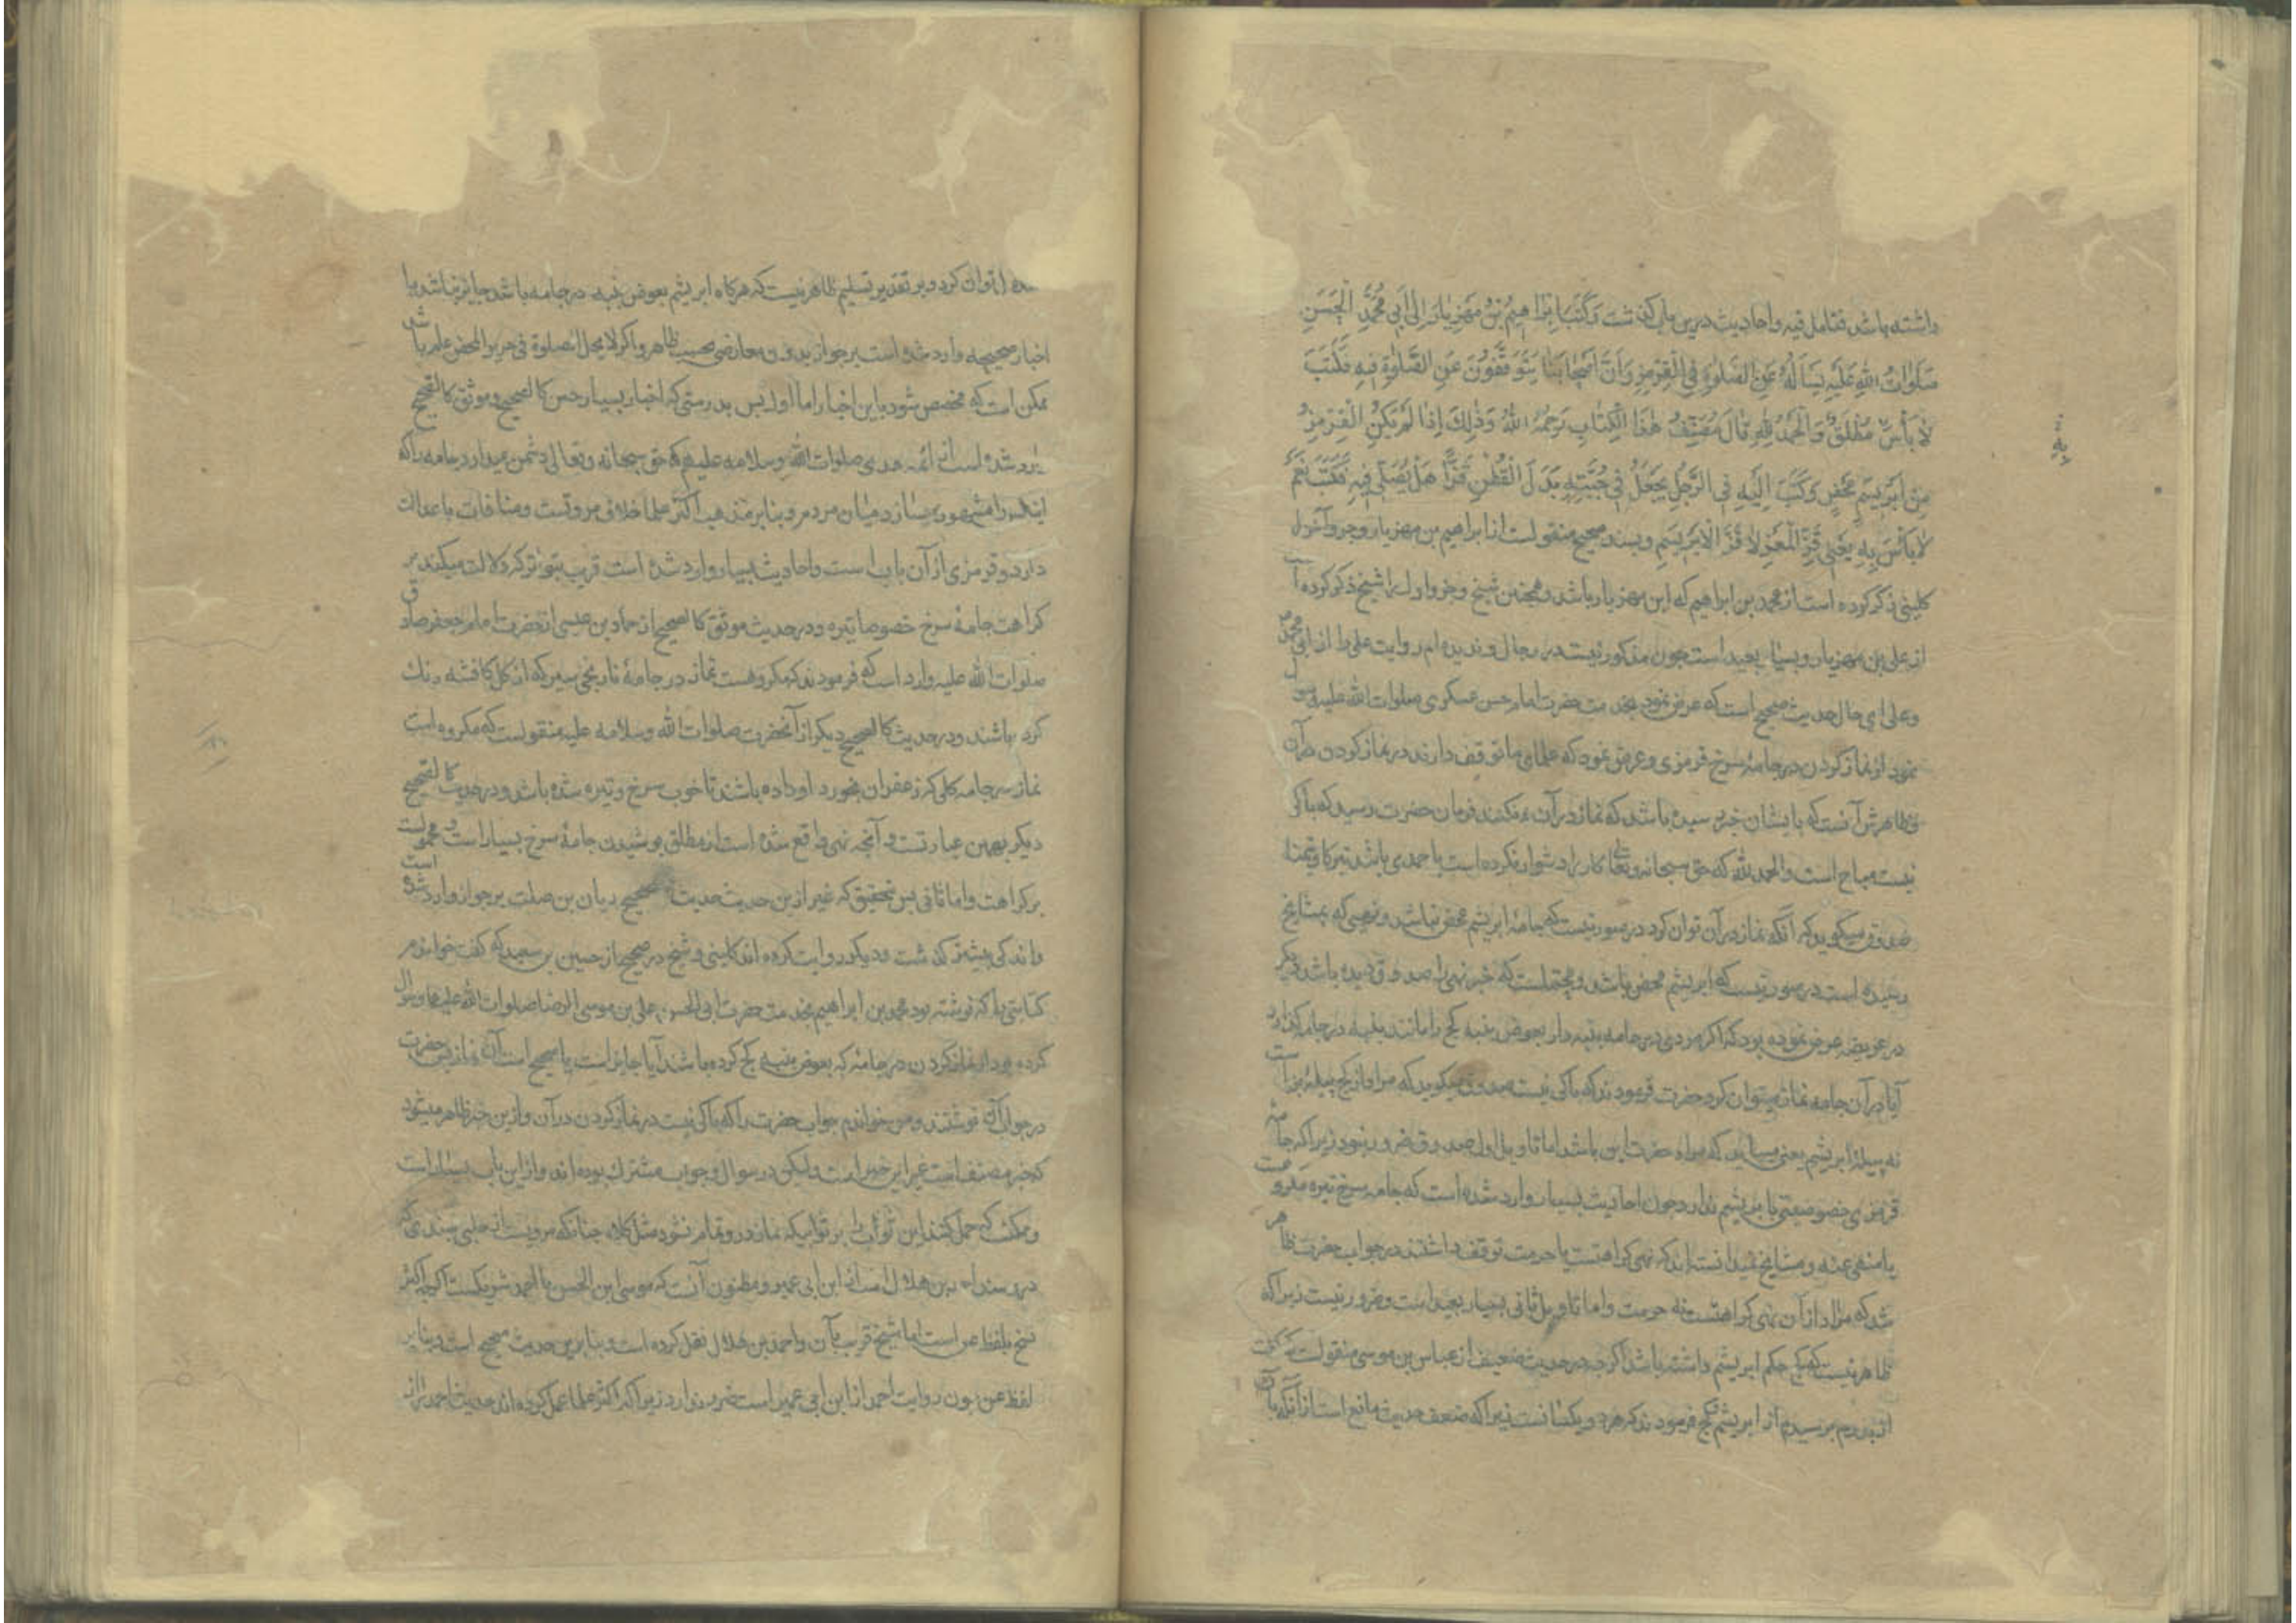 داشته باشد فتامل فیه و احادیث درین باب گذشت وَكَتَبَ اِبْرٰاهِیمُ بْنُ مَهْزِیٰارَ اِلیٰ اَبی مُحَمَّدٍ الْحَسَنِ
صَلَوٰاتُ اللهِ عَلَیْهِ یَسْاَلُهُ عَنِ الصَّلٰوةِ فِی الْقِرْمِزِ وَاَنَّ اَصْحٰابَنٰا یَتَوَقَّفُونَ عَنِ الصَّلٰوةِ فیهِ فَكَتَبَ
لٰا بَأْسَ مُطْلَقٌ وَالْحَمْدُ لِلّٰهِ قٰالَ مُصَنِّفُ هٰذَا الْكِتٰابِ رَحِمَهُ اللهُ وَذٰلِكَ اِذٰا لَمْ یَكُنِ الْقِرْمِزُ
مِنْ اَبْرِیسَمٍ مَحْضٍ وَكَتَبَ اِلَیْهِ فِی الرَّجُلِ یَجْعَلُ فی جُبَّتِهِ بَدَلَ الْقُطْنِ قَزًّا هَلْ یُصَلّی فیهِ فَكَتَبَ نَعَمْ
لٰا بَأْسَ بِهِ یَعْنی قَزَّ الْمَعْزِ لٰا قَزَّ الْاَبْرِیسَمِ و بسند صحیح منقولست از ابراهیم بن مهزیار و جزو آخر را
كلینی ذكر كرده است از محمد بن ابراهیم كه ابن مهزیار باشد و همچنین شیخ و جزو اول را شیخ ذكر كرده است
از علی بن مهزیار و بسیار بعید است چون مذكور نیست در رجال و ندیده‌ام روایت علی را از ابی محمد ص
و علی ای حال حدیث صحیح است كه عرض نمود بخدمت حضرت امام حسن عسكری صلوات الله علیه و سوال
نمود از نماز كردن در جامهٔ سرخ قرمزی و عرض نمود كه علمای ما توقف دارند در نماز كردن در آن
و ظاهرش آنست كه بایشان خبر رسیده باشد كه نماز در آن نمكنند فرمان حضرت رسید كه باكی
نیست مباح است و الحمد لله كه حق سبحانه و تعالی كار را دشوار نكرده است یا حمدی باشد تبركا و تیمنا
صدوق میكوید كه آنكه نماز در آن توان كرد در صورتیست كه جامهٔ ابریشم محض نباشد و نهیی كه بمشایخ
رسیده است در صورتیست كه ابریشم محض باشد و محتملست كه خبر نهی را صدوق دیده باشد و دیكر
در عریضه عرض نموده بود كه اكر مردی در جامه پنبه دار بعوض پنبه كج را مانند پنبه در جامه كذارد
آیا در آن جامه نماز میتوان كرد حضرت فرمودند كه باكی نیست صدوق میكوید كه مراد از كج پیلهٔ بز است
نه پیلهٔ ابریشم یعنی میباید كه مراد حضرت این باشد اما تاویل اول صدوق ضرور نبود زیرا كه جامهٔ
قرمزی خصوصیتی با بریشم ندارد چون احادیث بسیار وارد شده است كه جامهٔ سرخ تیره مكروهست
یا منهی عنه و مشایخ نمیدانسته‌اند كه نهی كراهتست یا حرمت توقف داشتند در جواب حضرت ظاهر
شد كه مراد از آن نهی كراهتست نه حرمت و اما تاویل ثانی بسیار بعید است و ضرور نیست زیرا كه
ظاهر نیست كه كج حكم ابریشم داشته باشد اكرچه در حدیث ضعیف از عباس بن موسی منقولست كه كفت
از پدرم پرسیدم از ابریشم و كج فرمودند كه هر دو یكسانست زیرا كه ضعف حدیث مانع است از آنكه بآن
توان كرد و بر تقدیر تسلیم ظاهر نیست كه هركاه ابریشم بعوض پنبه در جامه باشد جایز نباشد با
اخبار صحیحه وارد شده است بر جواز بدون معارضی بحسب ظاهر و اكر لا یحل الصلوة فی حریر المحض عام باشد
ممكن است كه مخصص شود باین اخبار اما اول پس بدرستی كه اخبار بسیار حسن كالصحیح و موثق كالصحیح
وارد شده است از ائمه هدی صلوات الله و سلامه علیهم كه حق سبحانه و تعالی دشمن میدارد جامه را كه
مشهور سازد میان مردم و بنابر مذهب اكثر علما خلاف مروتست و منافات با عدالت
دارد و قرمزی از آن باب است و احادیث بسیار وارد شده است قریب بتواتر كه دلالت میكند بر
كراهت جامهٔ سرخ خصوصا تیره و در حدیث موثق كالصحیح از حماد بن عیسی از حضرت امام جعفر صادق
صلوات الله علیه وارد است كه فرمودند كه مكروهست نماز در جامهٔ نارنجی سیر كه از كل كافشه رنك
كرده باشند و در حدیث كالصحیح دیكر از آنحضرت صلوات الله و سلامه علیه منقولست كه مكروه است
نماز در جامه كلی كه زعفران بخورد او داده باشند تا خوب سرخ و تیره شده باشد و در حدیث كالصحیح
دیكر بهمین عبارتست و آنچه نهی واقع شده است از مطلق پوشیدن جامهٔ سرخ بسیار است و محمولست
بر كراهت و اما ثانی پس بتحقیق كه غیر ازین حدیث حدیث صحیح ریان بن صلت بر جواز وارد شده است
و اندكی پیشتر كذشت و دیكر روایت كرده‌اند كلینی و شیخ در صحیح از حسین بن سعید كه كفت خواندم
كتابتی را كه نوشته بود محمد بن ابراهیم بخدمت حضرت ابی الحسن علی بن موسی الرضا صلوات الله علیهما و سوال
كرده بود از نماز كردن در جامهٔ كه بعوض پنبه كج كرده باشند آیا جایز است یا صحیح است آن نماز پس حضرت
در جواب نوشتند و من خواندم جواب حضرت را كه باكی نیست در نماز كردن در آن و ازین خبر ظاهر میشود
كه خبر مصنف است غیر این خبر است ولیكن در سوال و جواب مشترك بوده‌اند و از این باب بسیار است
و ممكنست كه حمل كنند این ثواب را بر ثوابیكه نماز در و تمام نشود مثل كلاه چنانكه مرویست از حلبی بسندی كه
در سند احمد بن هلال است از ابن ابی عمیر و مظنون آنست كه موسی ابن الحسن با احمد شریكست اكرچه اكثر
نسخ بلفظ عن است اما شیخ قریب بآن و احمد بن هلال نقل كرده است و بنابرین حدیث صحیح است و بنابر
لفظ عن چون روایت احمد از ابن ابی عمیر است ضرر ندارد زیرا كه اكثر علما عمل كرده‌اند بحدیث احمد از